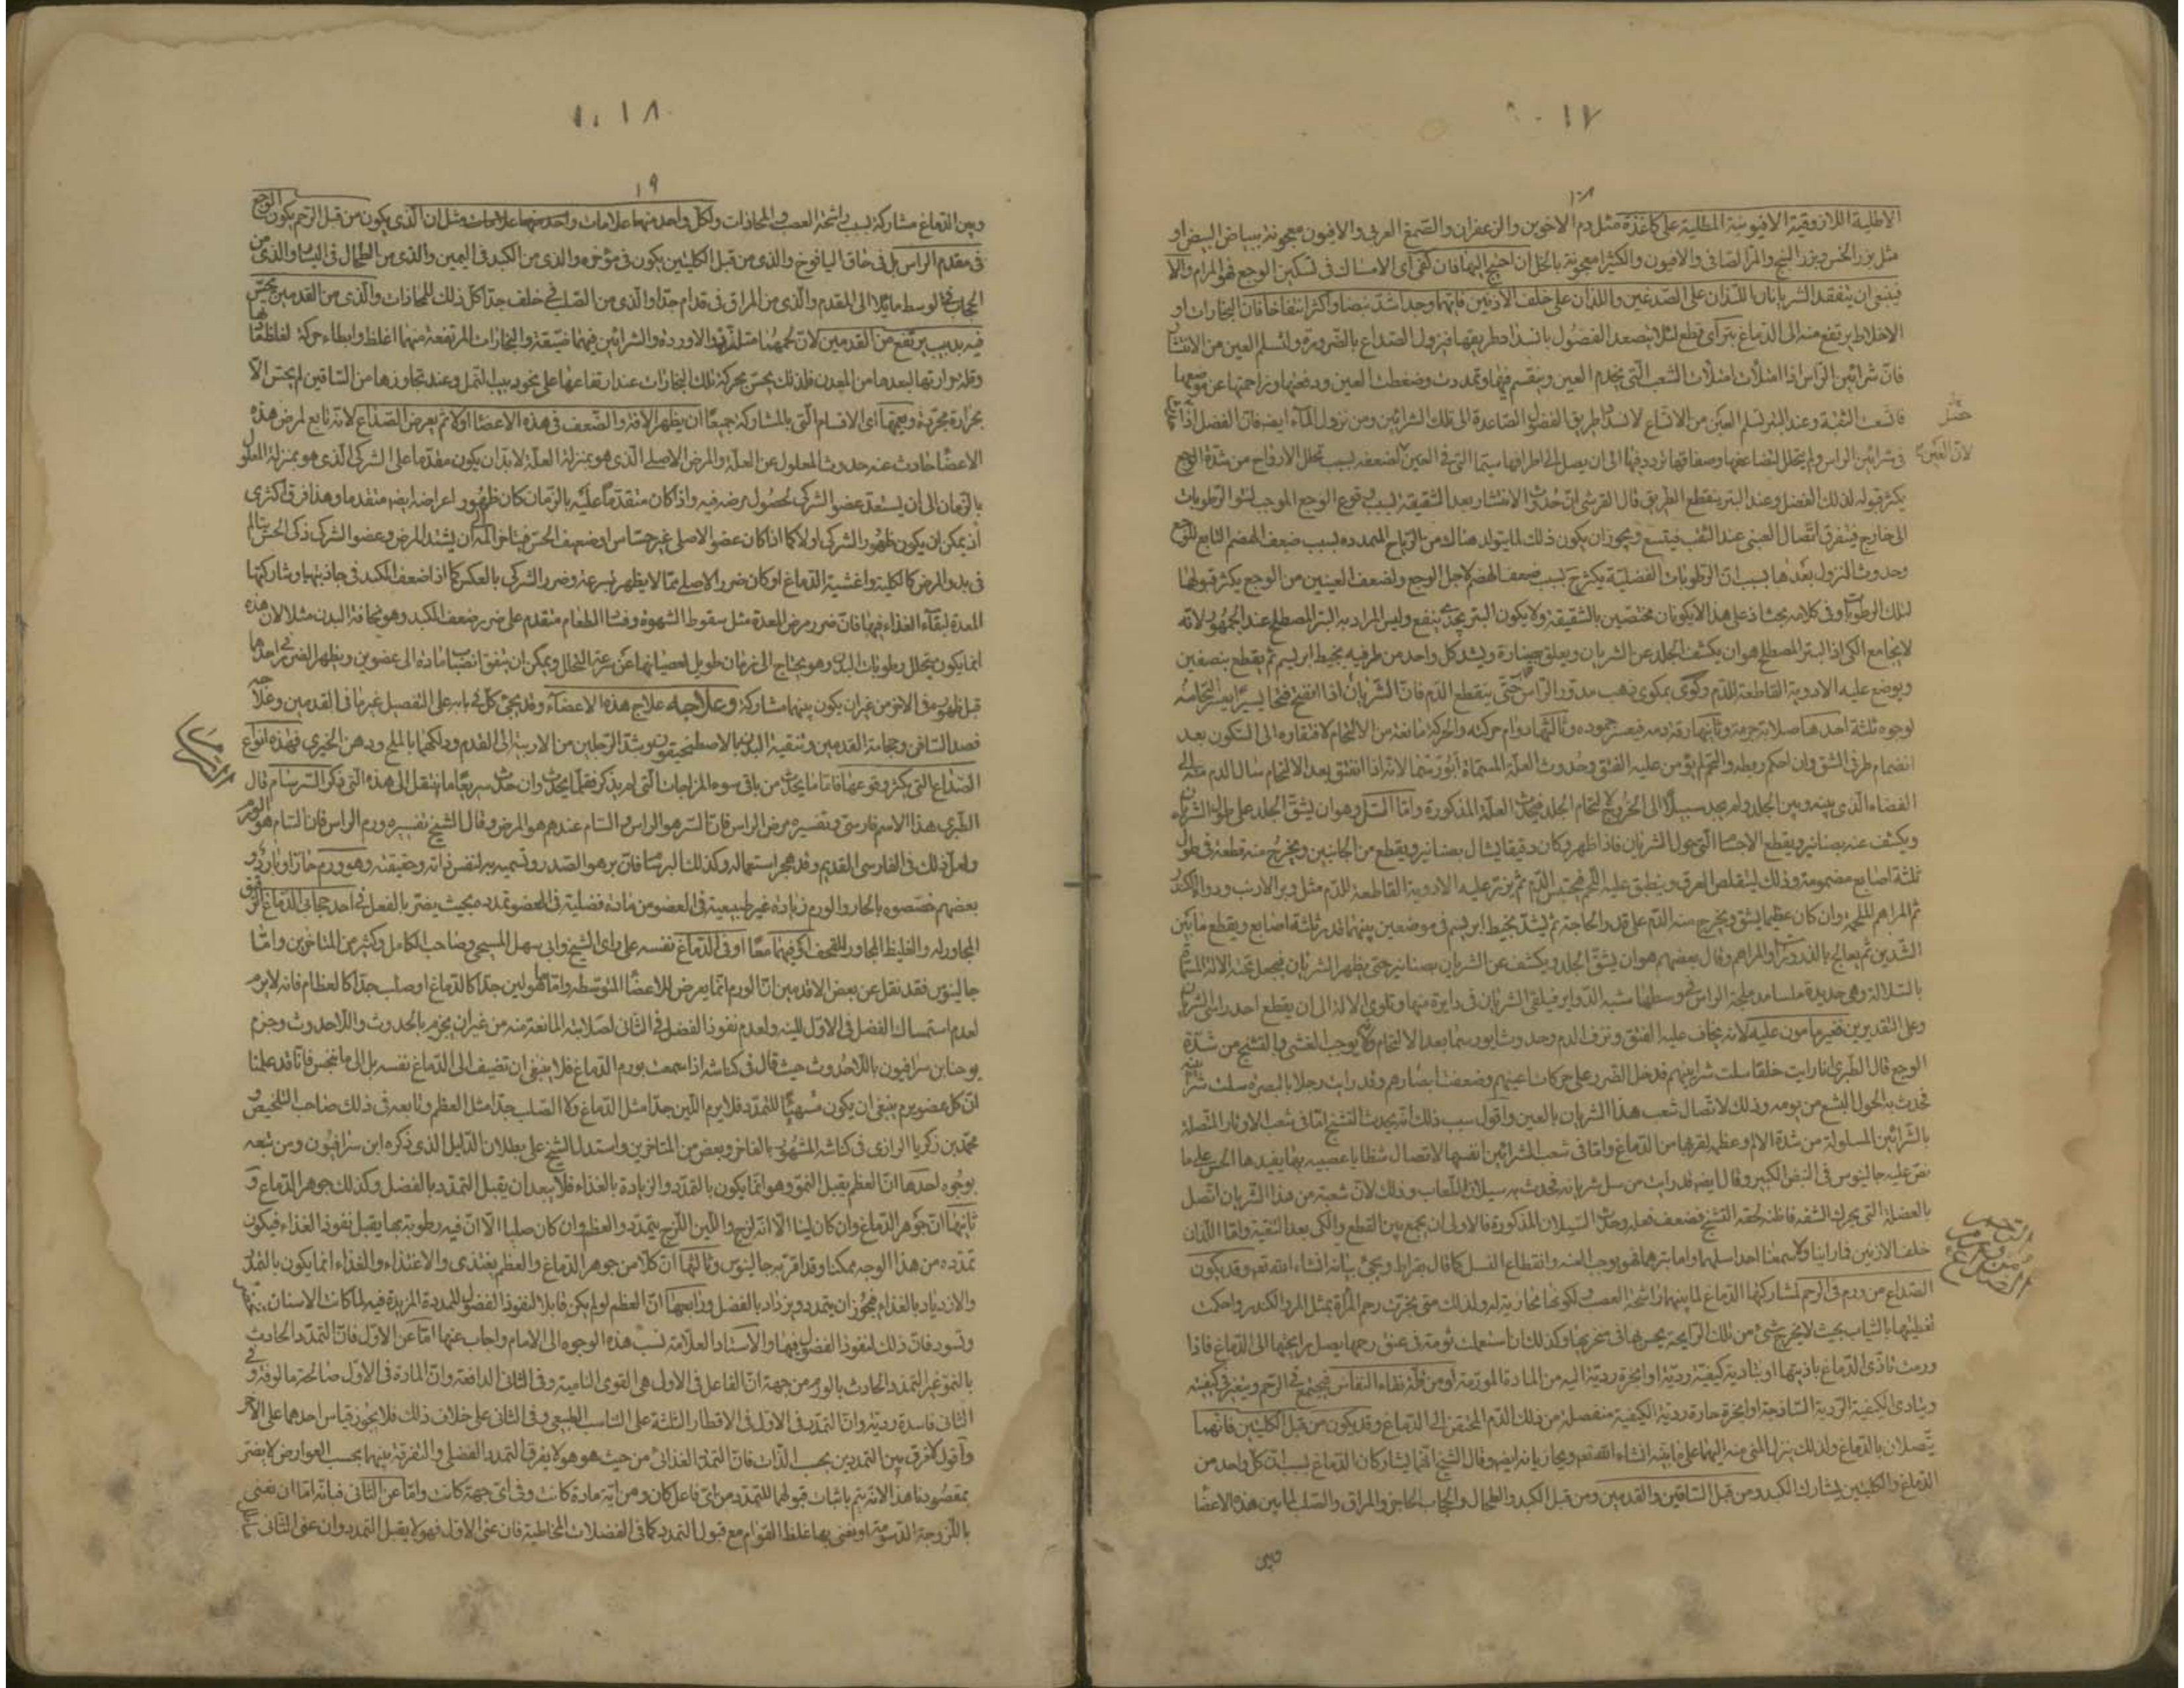 ١٠١٧
الاطلية اللازوقية الافيونية المطلية على كاغذة مثل دم الاخوين والزعفران والصمغ العربى والافيون معجونة ببياض البيض او
مثل بزر الخس وبزر البنج والمر الصافى والافيون والكثيرا معجونة بالخل ان احتيج اليها فان كفى اى الامساك فى تسكين الوجع فهو المرام والا
فينبغى ان يتفقد الشريانان اللذان على الصدغين واللذان على خلف الاذنين فايهما وجد اشد نبضا واكثر انتفاخا فان البخارات او
الاخلاط يرتفع منه الى الدماغ بتر اى قطع لئلا يتصعد الفضول بانسداد طريقها فيزول الصداع بالضرورة ولتسلم العين من الانتشار
فان شرائين الراس اذا امتلأت امتلأت الشعب التى يخدم العين وينقسم فيها وتمددت وضغطت العين ودفعتها وزاحمتها عن موضعها
فاتسعت الثقبة وعند البتر تسلم العين من الاتساع لانسداد طريق الفضول الصاعدة الى تلك الشرائين ومن نزول الماء ايضا فان الفضل اذا
فى شرائين الراس ولم يتحلل لتضاعفها وصفاقتها تردد فيها الى ان يصل الى اطرافها سيما التى فى العين لضعفه بسبب تحلل الارواح من شدة الوجع
يكثر قبوله لذلك الفضل وعند البتر ينقطع الطريق قال القرشى ان حدوث الانتشار بعد الشقيقة بسبب وقوع الوجع الموجب الرطوبات
الى خارج فيتفرق اتصال العينى عند الثقب فيتسع ويجوز ان يكون ذلك لما يتولد هناك من الرياح الممددة بسبب ضعف الهضم التابع للوجع
وحدوث النزول بعدها بسبب ان الرطوبات الفضلية يكثر ح بسبب ضعف الهضم لاجل الوجع ولضعف العينين من الوجع يكثر قبولها
لتلك الرطوبات وفى كلامه بحث اذ على هذا لا يكونان مختصين بالشقيقة ولا يكون البتر ينفع وليس المراد به البتر المصطلح عند الجمهور لانه
لا يجامع الكى اذ البتر المصطلح هو ان يكشف الجلد عن الشريان ويعلق بصنارة ويشد كل واحد من طرفيه بخيط ابريسم ثم يقطع بنصفين
ويوضع عليه الادوية القاطعة للدم وكوى بمكوى ذهب مدور الراس حتى ينقطع الدم فان الشريان اذا انفتح فتحا يسيرا يعسر التحامه
لوجوه ثلثة احدها صلابة جرمه وثانيها رقة دمه فيعسر جموده وثالثها دوام حركته والحركة مانعة من الالتحام لافتقاره الى السكون بعد
انضمام طرفى الشق وان احكم ربطه والتحم لم يؤمن عليه الفتق وحدوث العلة المسماة ابورسما لانه اذا انفتق بعد الالتحام سال الدم منه الى
الفضاء الذى بينه وبين الجلد ولم يجد سبيلا الى الخروج لالتحام الجلد فيحدث العلة المذكورة واما السل وهو ان يشق الجلد على طول الشريان
ويكشف عنه بصنانير ويقطع الاجسام التى حول الشريان فاذا ظهر وكان دقيقا يشال بصنانير ويقطع من الجانبين ويخرج منه قطعة فى طول
ثلثة اصابع مضمومة وذلك ليتقلص العرق وينطبق عليه اللحم فيحتبس الدم ثم ينثر عليه الادوية القاطعة للدم مثل وبر الارنب ودواء الكندر
ثم المراهم الملحمة وان كان عظيما يشق ويخرج منه الدم على قدر الحاجة ثم يشد بخيط ابريسم فى موضعين بينهما قدر ثلثة اصابع ويقطع ما بين
الشدين ثم يعالج بالذرورات والمراهم وقال بعضهم هو ان يشق الجلد ويكشف عن الشريان بصنانير حتى يظهر الشريان فيجعل تحته الالة المسماة
بالسلالة وهى حديدة ملسا مدملجة الراس فى وسطها شبه الدواير فيلقى الشريان فى دايرة منها وتلوى الالة الى ان يقطع احد راسى الشريان
وعلى التقديرين فغير مامون عليه لانه يخاف عليه الفتق ونزف الدم وحدوث ابورسما بعد الالتحام وقد يوجب الغشى والتشنج من شدة
الوجع قال الطبرى انا رايت خلقا سلت شرايينهم فدخل الضرر على حركات اعينهم وضعفت ابصارهم وقد رايت رجلا بالبصرة سلت شرايينه
فحدث به الحول البشع من يومه وذلك لاتصال شعب هذا الشريان بالعين واقول سبب ذلك انه يحدث التشنج اما فى شعب الاوتار المتصلة
بالشرائين المسلولة من شدة الالم وعظمه لقربها من الدماغ واما فى شعب الشرائين انفسها لاتصال شظايا عصبية بها يفيدها الحس على ما
نص عليه جالينوس فى النبض الكبير وقال ايضا قد رايت من سل شريانه فحدث به سيلان اللعاب وذلك لان شعبة من هذا الشريان اتصل
بالعضلة التى يحرك الشفة فاظنه لحقه التشنج فضعف فعله وحدث السيلان المذكورة فالاولى ان يجمع بين القطع والكى بعد التنقية واما اللذان
خلف الاذنين فما راينا ولا سمعنا احدا سلهما واما بترهما فهو يوجب العنة وانقطاع النسل كما قال بقراط ويجئ بيانه انشاء الله تعه وقد يكون
الصداع من ورم فى الرحم لمشاركتها الدماغ لما بينهما من اشتجة العصب ولكونها محاذية له ولذلك متى بخرت رحم المرأة بمثل المر والكندر واحكمت
تغطيتها بالثياب بحيث لا يخرج شئ من تلك الرايحة يحس بها فى منخريها وكذلك ان استعملت ثومة فى عنق رحمها يصل رايحتها الى الدماغ فاذا
ورمت تاذى الدماغ باذيتها او يتادى كيفية ردية او ابخرة ردية اليه من المادة المورمة او من قلة نقاء النفاس فيجتمع فى الرحم ويتغير كيفيته
ويتادى الكيفية الردية الساذجة او ابخرة حارة ردية الكيفية منفصلة من ذلك الدم المحتقن الى الدماغ وقد يكون من قبل الكليتين فانهما
يتصلان بالدماغ ولذلك ينزل المنى منه اليهما على ما يجئ انشاء الله تعه ويحاذيانه ايضا وقال الشيخ انهما يشاركان الدماغ بسبب ان كل واحد من
الدماغ والكليتين يشارك الكبد ومن قبل الساقين والقدمين ومن قبل الكبد والطحال والحجاب الحاجز والمراق والصلب لما بين هذه الاعضا
وبين
١٠١٨
١٩
وبين الدماغ مشاركة بسبب اشتجة العصب والمحاذات ولكل واحد منهما علامات مثل ان الذى يكون من قبل الرحم يكون الوجع
فى مقدم الراس بل فى حاق اليافوخ والذى من قبل الكليتين يكون فى مؤخره والذى من الكبد فى اليمين والذى من الطحال فى اليسار والذى من
الحجاب فى الوسط مايلا الى المقدم والذى من المراق فى قدام جدا والذى من الصلب فى خلف جدا كل ذلك للمحاذات والذى من القدمين يحس
فيه بدبيب يرتفع من القدمين لان لحمهما متلزز والاوردة والشرائين فيهما ضيقة والبخارات المرتفعة منهما اغلظ وابطاء حركة لغلظها
وقلة حرارتها لبعدها من المعدن فلذلك يحس بحركة تلك البخارات عند ارتفاعها على نحو دبيب النمل وعند تجاوزها من الساقين لم يحس الا
بحرارة مجردة ويعمها اى الاقسام التى بالمشاركة جميعا ان يظهر الافة والضعف فى هذه الاعضا اولا ثم يعرض الصداع لانه تابع لمرض هذه
الاعضا حادث عنه حدوث المعلول عن العلة والمرض الاصلى الذى هو بمنزلة العلة لا بد ان يكون مقدما على الشركى الذى هو بمنزلة المعلول
بالزمان الى ان يستعد عضو الشركى لحصول مرضه فيه واذا كان متقدما عليه بالزمان كان ظهور اعراضه ايضا متقدما وهذا فرق اكثرى
اذ يمكن ان يكون ظهور الشركى اولا كما اذا كان عضو الاصلى غير حساس او ضعيف الحس فيتاخر المه الى ان يشتد المرض وعضو الشركى ذكى الحس
فى بدو المرض كالكلية واغشية الدماغ او كان ضرر الاصلى مما لا يظهر بسرعة وضرر الشركى بالعكس كما اذا ضعف الكبد فى جاذبتها وشاركتها
المعدة لبقاء الغذاء فيها فان ضرر مرض المعدة مثل سقوط الشهوة وفساد الطعام متقدم على ضرر ضعف الكبد وهو نحافة البدن مثلا لان هذه
انما يكون بتحلل رطوبات البدن وهو يحتاج الى زمان طويل لعصيانها عن سرعة التحلل ويمكن ان يتفق انصباب مادة الى عضوين ويظهر الضرر فى احدهما
قبل ظهوره فى الاخر من غير ان يكون بينهما مشاركة وعلاجه علاج هذه الاعضاء وقد يجئ كل فى بابه على التفصيل غير ما فى القدمين وعلاجه
فصد الصافن وحجامة القدمين وتنقية البدن بالاصطمخيقون وشد الرجلين من الاربية الى القدم ودلكهما بالملح ودهن الخيرى فهذه انواع
الصداع التى يكثر وقوعها فاما ما يحدث من باقى سوء المزاجات التى لم يذكر فقلما يحدث وان حدث سريعا ما ينتقل الى هذه التى ذكر السرسام قال
الطبرى هذا الاسم فارسى وتفسيره مرض الراس فان السر هو الراس والسام عندهم هو المرض وقال الشيخ تفسيره ورم الراس فان السام هو الورم
ولعل ذلك فى الفارسى القديم وقد هجر استعماله وكذلك البرسام فان بر هو الصدر وتسميته به لنفس ذاته وحقيقته وهو ورم حار او بارد و
بعضهم خصصوه بالحار والورم زيادة غير طبيعية فى العضو من مادة فضلية فى العضو تمدده بحيث يضر بالفعل فى احد حجابى الدماغ الرقيق
المجاور له والغليظ المجاور للقحف او فيهما معا او فى الدماغ نفسه على راى الشيخ وابى سهل المسيحى وصاحب الكامل وكثير من المتاخرين واما
جالينوس فقد نقل عن بعض الاقدمين ان الورم انما يعرض للاعضا المتوسطة واما ما هو لين جدا كالدماغ او صلب جدا كالعظام فانه لا يرم
لعدم استمساك الفضل فى الاول للينه ولعدم نفوذ الفضل فى الثانى لصلابته المانعة منه من غير ان يجزم بالحدوث واللاحدوث وجزم
يوحنا بن سرافيون باللاحدوث حيث قال فى كناشه اذا سمعت بورم الدماغ فلا ينبغى ان تضيف الى الدماغ نفسه بل الى مانجس فانا قد علمنا
ان كل عضو يرم ينبغى ان يكون مهيئا للتمدد فلا يرم اللين جدا مثل الدماغ ولا الصلب جدا مثل العظم وتابعه فى ذلك صاحب التلخيص و
محمد بن زكريا الرازى فى كناشه المشهور بالفاخر وبعض من المتاخرين واستدل الشيخ على بطلان الدليل الذى ذكره ابن سرافيون ومن تبعه
بوجوه احدها ان العظم يقبل النمو وهو انما يكون بالتمدد والزيادة بالغذاء فلا يبعد ان يقبل التمدد بالفضل وكذلك جوهر الدماغ و
ثانيها ان جوهر الدماغ وان كان لينا الا انه لزج واللين اللزج يتمدد والعظم وان كان صلبا الا ان فيه رطوبة بها يقبل نفوذ الغذاء فيكون
تمدده من هذا الوجه ممكنا وقد اقر به جالينوس وثالثها ان كلا من جوهر الدماغ والعظم يغتذى والاغتذاء والغذاء انما يكون بالتمدد
والازدياد بالغذاء فيجوز ان يتمدد ويزداد بالفضل ورابعها ان العظم لو لم يكن قابلا لنفوذ الفضول الممددة المزيدة فيه لما كانت الاسنان
وتسود فان ذلك لنفوذ الفضول فيها والاستاد العلامة نسب هذه الوجوه الى الامام واجاب عنها اما عن الاول فان التمدد الحادث
بالنمو غير التمدد الحادث بالورم من جهة ان الفاعل فى الاول هى القوى النامية وفى الثانى الدافعة وان المادة فى الاول صالحة مالوفة وفى
الثانى فاسدة ردية وان التمدد فى الاول فى الاقطار الثلثة على التناسب الطبيعى وفى الثانى على خلاف ذلك فلا يجوز قياس احدهما على الاخر
واقول لا فرق بين التمددين بحسب الذات فان التمدد الغذائى من حيث هو هو لا يفرق التمدد الفضلى والتفرقة بينهما بحسب العوارض لا يضر
بمقصودنا هذا لانه يتم باثبات قبولهما للتمدد من اى فاعل كان ومن اية مادة كانت وفى اى جهة كانت واما عن الثانى فبانه اما ان نعنى
باللزوجة الدسومة او نعنى بها غلظ القوام مع قبول التمدد كما فى الفضلات المخاطية فان عنى الاول فهو لا يقبل التمدد وان عنى الثانى